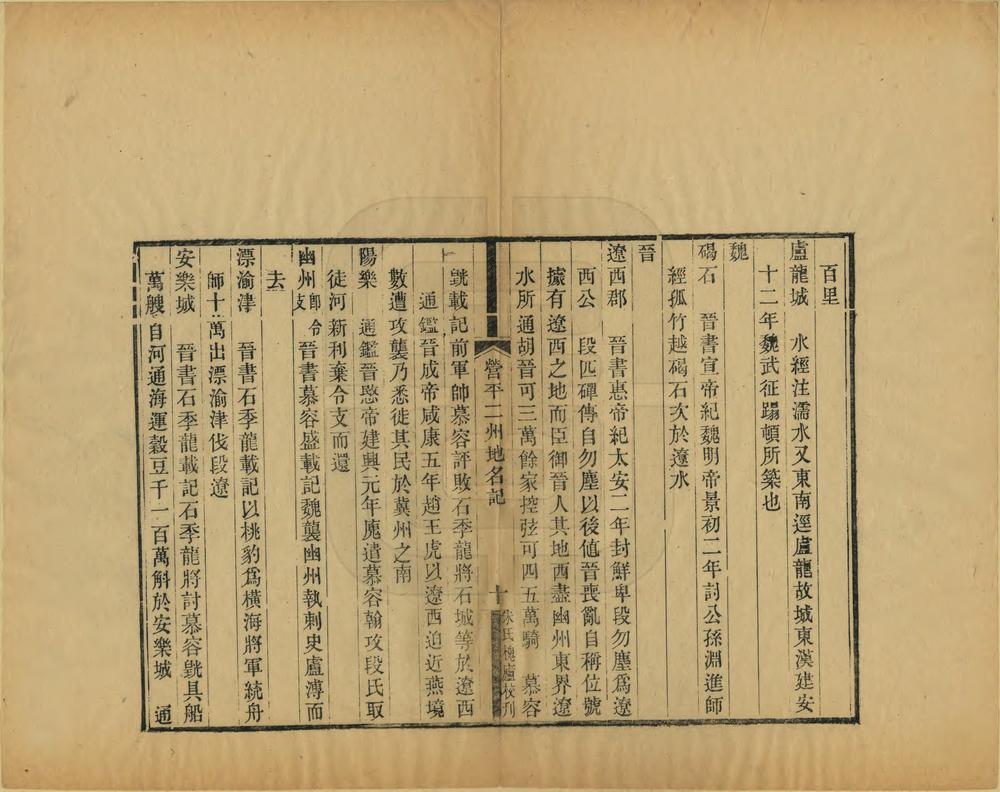 百里
盧龍城　水經注濡水又東南逕盧龍故城東漢建安
十二年魏武征蹋頓所築也
魏
碣石　晉書宣帝紀魏明帝景初二年討公孫淵進師
經孤竹越碣石次於遼水
晉
遼西郡　晉書惠帝紀太安二年封鮮卑段勿塵爲遼
西公　段匹磾傳自勿塵以後值晉喪亂自稱位號
據有遼西之地而臣御晉人其地西盡幽州東界遼
水所通胡晉可三萬餘家控弦可四五萬騎　慕容
營平二州地名記　十　朱氏槐廬校刊
皝載記前軍帥慕容評敗石季龍將石城等於遼西
通鑑晉成帝咸康五年趙王虎以遼西迫近燕境
數遭攻襲乃悉徙其民於冀州之南
陽樂　通鑑晉愍帝建興元年廆遣慕容翰攻段氏取
徒河新利棄令支而還
幽州　卽令支　晉書慕容盛載記魏襲幽州執刺史盧溥而
去
漂渝津　晉書石季龍載記以桃豹爲橫海將軍統舟
師十萬出漂渝津伐段遼
安樂城　晉書石季龍載記石季龍將討慕容皝具船
萬艘自河通海運穀豆千一百萬斛於安樂城　通